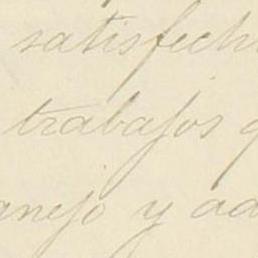 satisfech
trabajos
anejo y ad